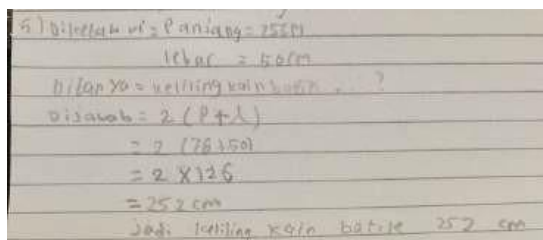 5) Diketahui = Panjang = 75cm
lebar = 50cm
Ditanya = keliling kain batik . . . ?
Dijawab = 2 (P+l)
= 2 (76+50)
= 2 X 126
= 252 cm
Jadi keliling kain batik 252 cm